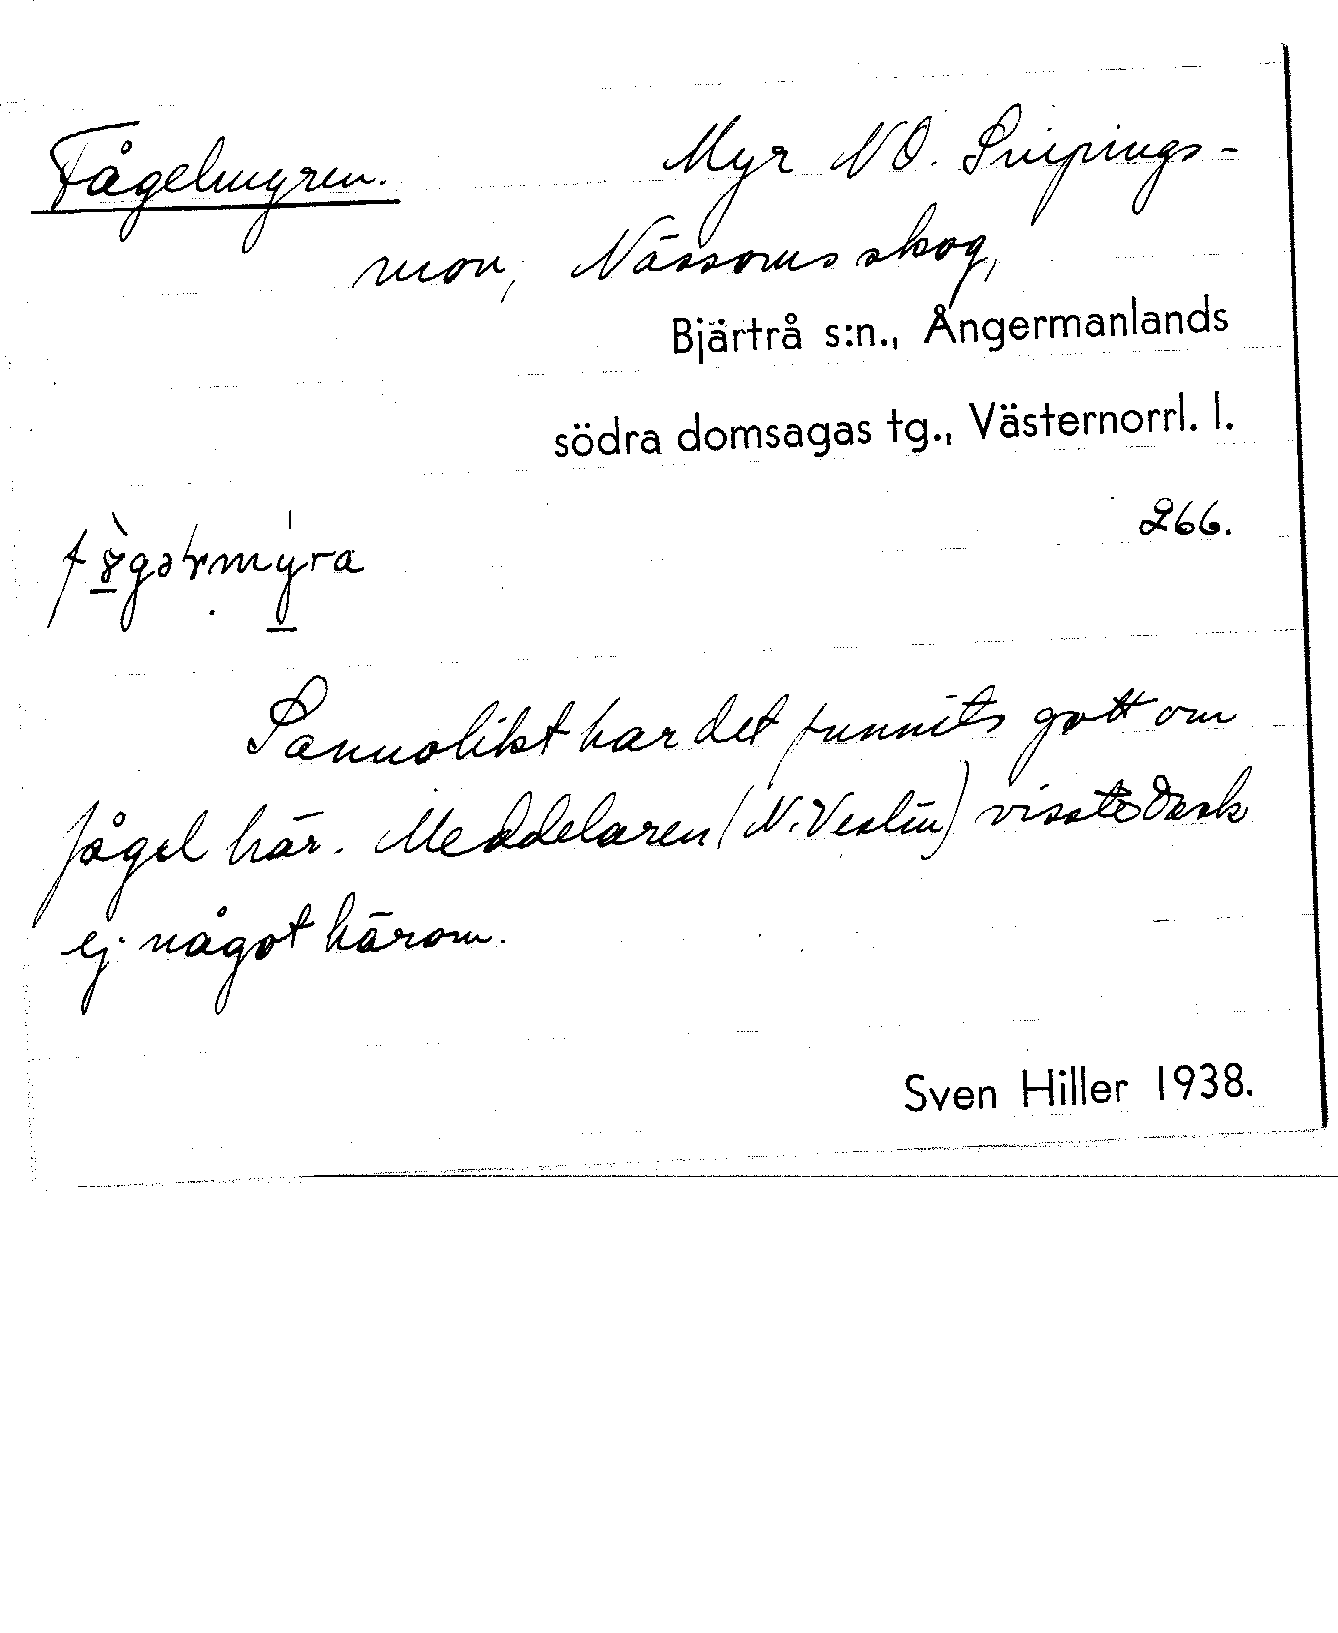 Fågelmyren. Myr NO. Svepings-
mon, Nässoms skog,
Bjärtrå s:n., Ångermanlands
södra domsagas tg., Västernorrl. l.
266.
Sannolikt har det funnits gott om
fågel här. Meddelaren (N. Veslin) visste dock
ej något härom.
Sven Hiller 1938.